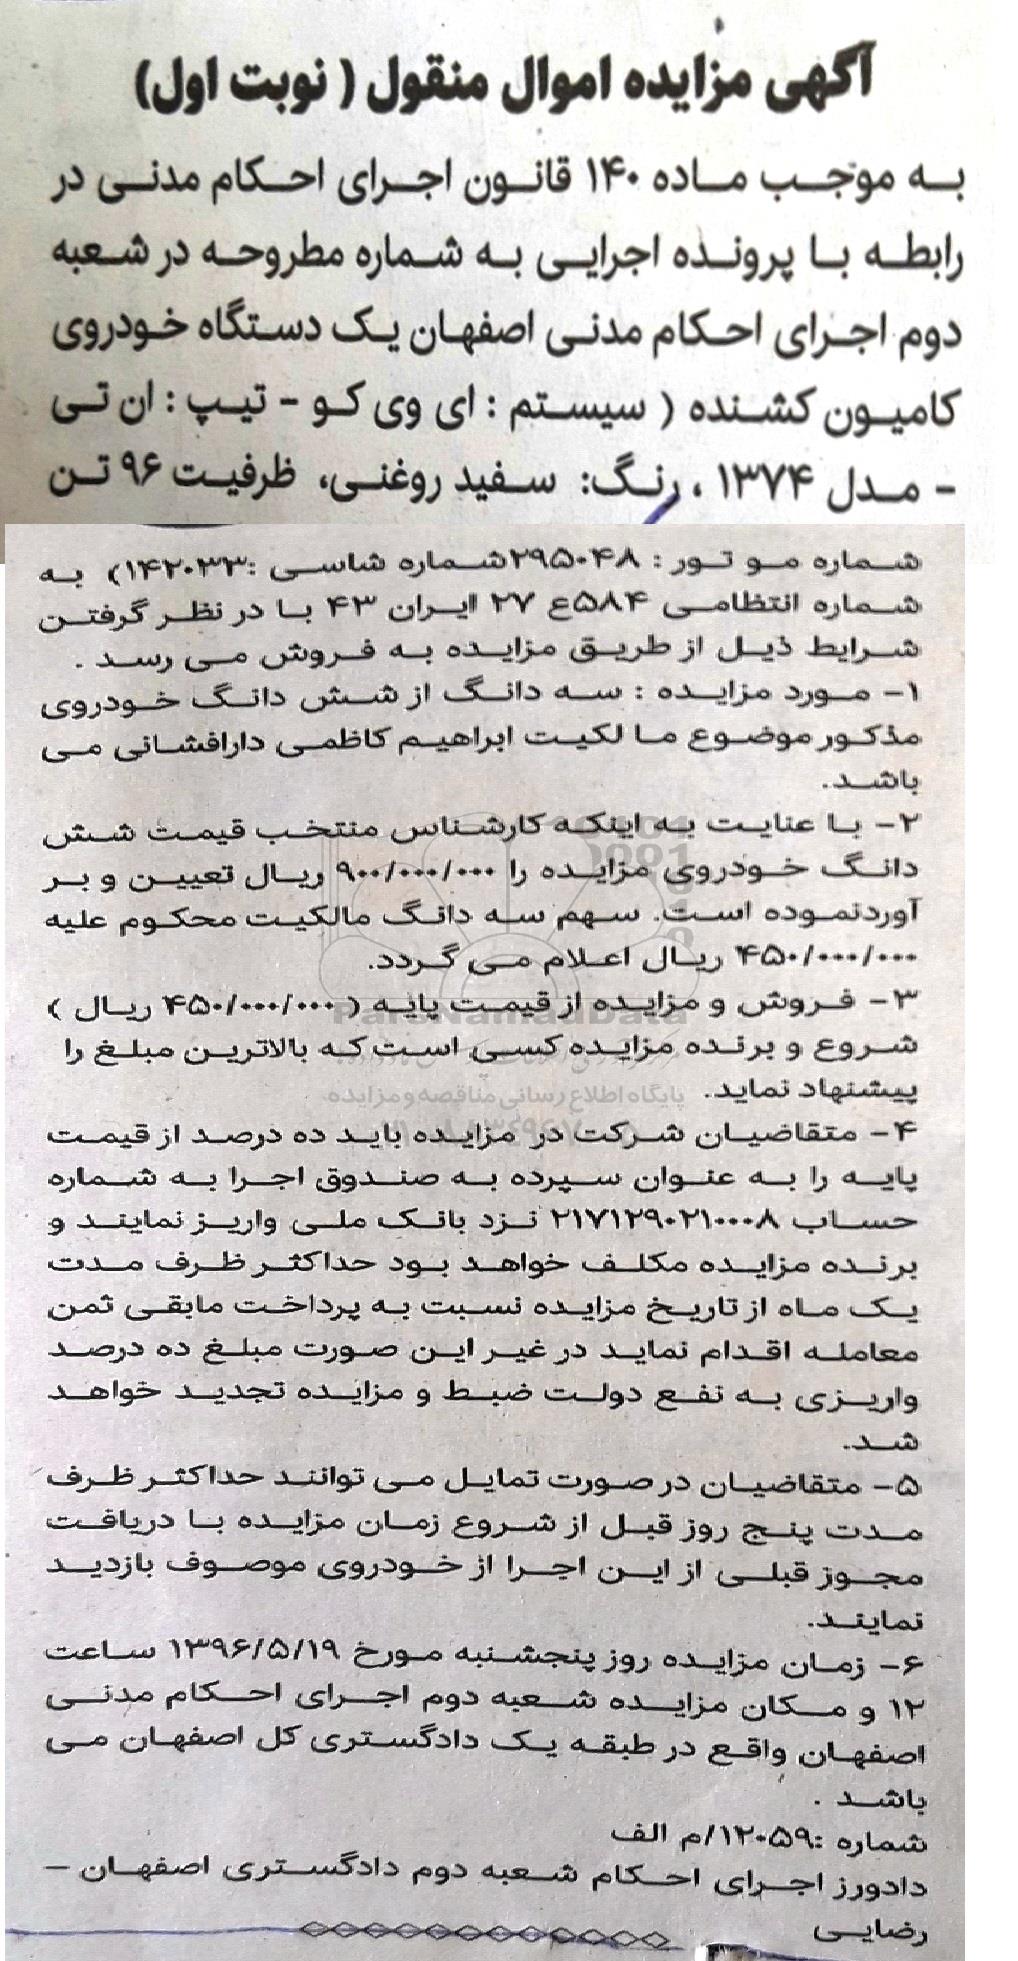 آگهی مزایده اموال منقول ( نوبت اول)
به موجب ماده ۱۴۰ قانون اجرای احکام مدنی در
رابطه با پرونده اجرایی به شماره مطروحه در شعبه
دوم اجرای احکام مدنی اصفهان یک دستگاه خودروی
کامیون کشنده ( سیستم : ای وی کو - تیپ : ان تی
- مدل ۱۳۷۴ ، رنگ: سفید روغنی، ظرفیت ۹۶ تن
شماره مو تور : ۲۹۵۰۴۸شماره شاسی :۱۴۲۰۳۳) به
شماره انتظامی ۵۸۴ع ۲۷ ایران ۴۳ با در نظر گرفتن
شرایط ذیل از طریق مزایده به فروش می رسد .
۱- مورد مزایده : سه دانگ از شش دانگ خودروی
مذکور موضوع ما لکیت ابراهیم کاظمی دارافشانی می
باشد.
۲- با عنایت به اینکه کارشناس منتخب قیمت شش
دانگ خودروی مزایده را ۹۰۰/۰۰۰/۰۰۰ ریال تعیین و بر
آوردنموده است. سهم سه دانگ مالکیت محکوم علیه
۴۵۰/۰۰۰/۰۰۰ ریال اعلام می گردد.
۳- فروش و مزایده از قیمت پایه ( ۴۵۰/۰۰۰/۰۰۰ ریال )
شروع و برنده مزایده کسی است که بالاترین مبلغ را
پیشنهاد نماید.
پایگاه اطلاع رسانی مناقصه و مزایده
ParsNamadData
۴- متقاضیان شرکت در مزایده باید ده درصد از قیمت
پایه را به عنوان سپرده به صندوق اجرا به شماره
حساب ۲۱۷۱۲۹۰۲۱۰۰۰۸ نزد بانک ملی واریز نمایند و
برنده مزایده مکلف خواهد بود حداکثر ظرف مدت
یک ماه از تاریخ مزایده نسبت به پرداخت مابقی ثمن
معامله اقدام نماید در غیر این صورت مبلغ ده درصد
واریزی به نفع دولت ضبط و مزایده تجدید خواهد
شد.
۵- متقاضیان در صورت تمایل می توانند حداکثر ظرف
مدت پنج روز قبل از شروع زمان مزایده با دریافت
مجوز قبلی از این اجرا از خودروی موصوف بازدید
نمایند.
۶- زمان مزایده روز پنجشنبه مورخ ۱۳۹۶/۵/۱۹ ساعت
۱۲ و مکان مزایده شعبه دوم اجرای احکام مدنی
اصفهان واقع در طبقه یک دادگستری کل اصفهان می
باشد .
شماره :۱۲۰۵۹/م الف
دادورز اجرای احکام شعبه دوم دادگستری اصفهان –
رضایی